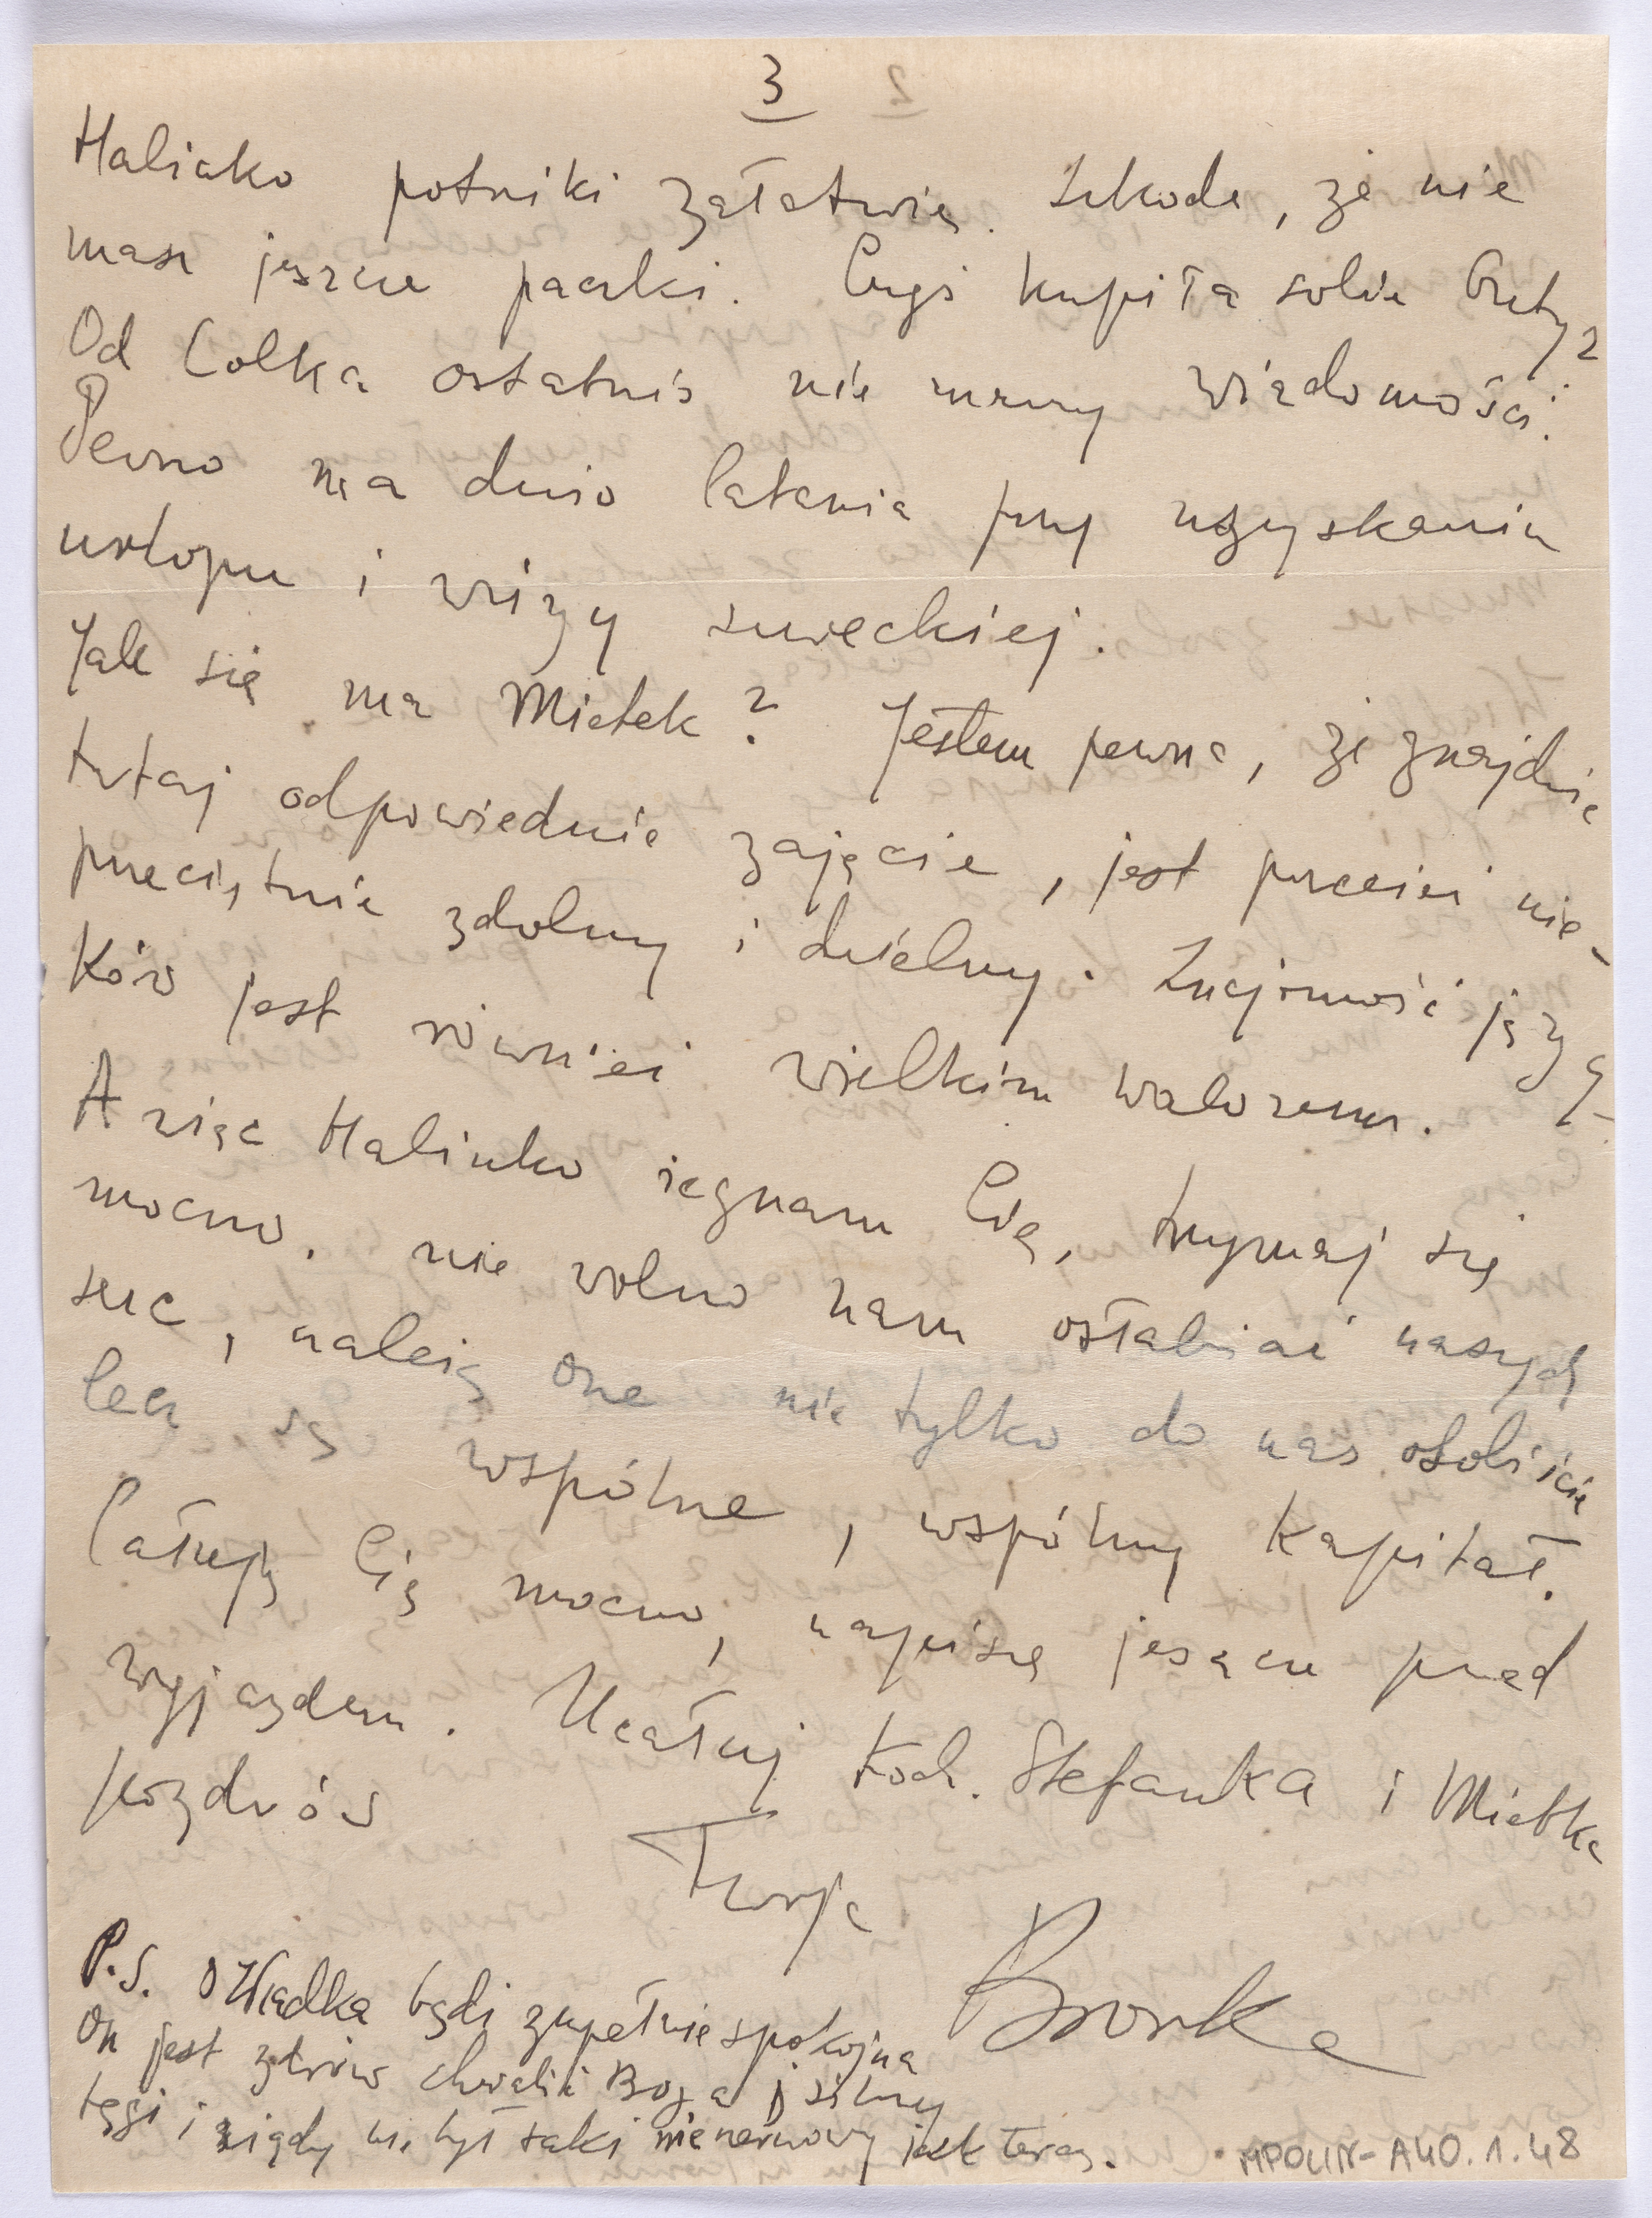 3
Halinko potniki załatwię. Szkoda, że nie
masz jeszcze paczki. Czyś kupiła sobie buty?
Od Colka ostatnio nie mamy wiadomości.
Pewno ma dużo latania przy uzyskaniu
urlopu i wizy szweckiej.
Jak się ma Mietek? Jestem pewna, że znajdzie
tutaj odpowiednie zajęcie, jest przecież nie-
przeciętnie zdolny i dzielny. Znajomość języ-
ków jest również wielkim walorem.
A więc Halinko żegnam Cię, trzymaj się
mocno, nie wolno nam osłabiać naszych
serc, należą one nie tylko do nas osobiście
lecz są wspólne, wspólny kapitał.
Całuję Cię mocno, napiszę jeszcze przed
wyjazdem. Ucałuj Koch. Stefanka i Mietka
pozdrów
Twoja
Bronka
P.S. O Władka bądź zupełnie spokojna
On jest zdrów chwalić Boga i silny
tęgi i nigdy nie był taki nienerwowy jak teraz.
MPOLIN-A40.1.48